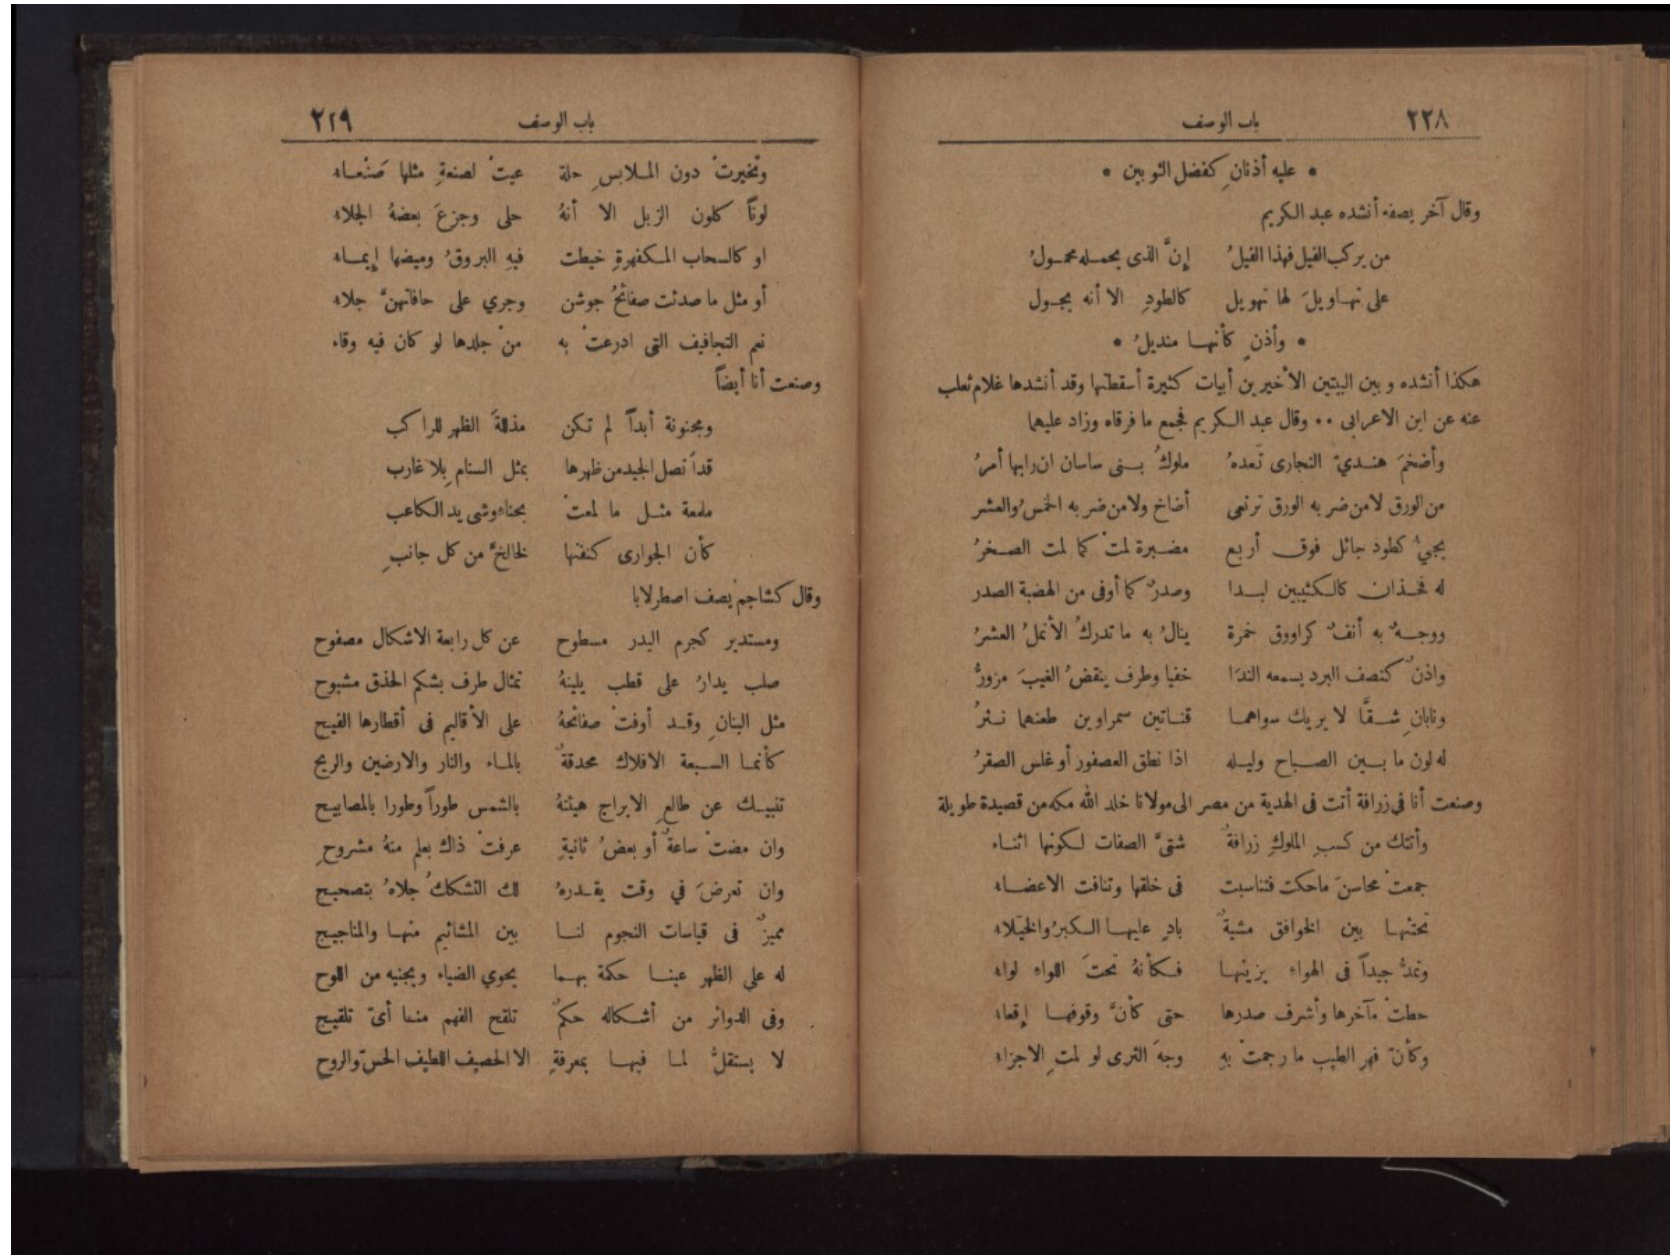 ٢٢٨ باب الوصف
* عليه أذنانِ كفضل الثوبين *
وقال آخر يصفه أنشده عبد الكريم
من يركب الفيل فهذا الفيلُ إنَّ الذى يحمله محمولُ
على تهاويلَ لها تهويل كالطودِ الا أنه يجول
* وأذنٍ كأنها منديلُ *
هكذا أنشده وبين البيتين الأخيرين أبيات كثيرة أسقطتها وقد أنشدها غلام ثعلب
عنه عن ابن الاعرابى ٠٠ وقال عبد الكريم فجمع ما فرقاه وزاد عليهما
وأضخمَ هنديّ النجارى تعدهُ ملوكُ بنى ساسان ان رابها أمرُ
من الورق لا من ضربه الورق ترتعى أضاخ ولا من ضربه الخمسُ والعشر
يجيُ كطود جائل فوق أربع مضبرة لمتْ كما لمت الصخرُ
له فخذان كالكثيبين لبدا وصدرٌ كما أوفى من الهضبة الصدر
ووجهٌ به أنفٌ كراووق خمرة ينالُ به ما تدركُ الأنملُ العشرُ
واذنٌ كنصف البرد يسمعه الندا خفيا وطرف ينقضُ الغيبَ مزورُّ
ونابانِ شقَّا لا يريك سواهما قناتين سمراوين طعنهما نثرُ
له لون ما بين الصباح وليله اذا نطق العصفور أو غلس الصقرُ
وصنعت أنا في زرافة أتت فى الهدية من مصر الى مولانا خلد الله ملكه من قصيدة طويلة
وأتتك من كسبِ الملوكِ زرافةٌ شتىَّ الصفات لكونها اثناء
جمعتْ محاسنَ ما حكت فتناسبت فى خلقها وتنافت الاعضاء
تحتثها بين الخوافق مشيةٌ بادٍ عليها الكبرُ والخيلاء
وتمدُّ جيداً فى الهواءِ يزينها فكأنهُ تحتَ اللواءِ لواء
حطتْ مآخرها وأشرف صدرها حتى كأنَّ وقوفها إقعاء
وكأنّ فهر الطيب ما رجمتْ بهِ وجهَ الثرى لو لمتِ الاجزاء
باب الوصف ٢٢٩
وتخيرتْ دون الملابسِ حلة عيتْ لصنعةِ مثلها صَنْعاء
لوناً كلون الزبل الا أنهُ حلى وجزعَ بعضهُ الجلاء
او كالسحاب المكفهرةِ خيطت فيهِ البروقُ وميضها إيماء
أو مثل ما صدئت صفائحُ جوشن وجري على حافاتهنَّ جلاء
نعم التجافيف التى ادرعتْ به منْ جلدها لو كان فيه وقاء
وصنعت أنا أيضاً
ومجنونة أبداً لم تكن مذللةَ الظهر للراكب
قد اتصل الجيد من ظهرها بمثل السنام بِلا غارب
ملمعة مثل ما لمعتْ بحناء وشى يد الكاعب
كأن الجوارى كنفنها لخالخَّ من كل جانبِ
وقال كشاجم يصف اصطرلابا
ومستدير كجرم البدر مسطوح عن كل رابعة الاشكال مصفوح
صلب يدارُ على قطب يلينهُ تمثال طرف بشكم الحذق مشبوح
مثل البنانِ وقد أوفتْ صفائحهُ على الأقاليم فى أقطارها الفيح
كأنما السبعة الافلاك محدقةٌ بالماء والنار والارضين والريح
تنبيك عن طالعِ الابراج هيئتهُ بالشمس طوراً وطورا بالمصابيح
وان مضتْ ساعةٌ أو بعضُ ثانيةٍ عرفتْ ذاك بعلم منهُ مشروحِ
وان تعرضَ في وقت يقدرهُ لك التشككُ جلاهُ بتصحيح
مميزٌ فى قياسات النجوم لنا بين المشائيم منها والمناجيح
له علي الظهر عينا حكمة بهما يحوي الضياء ويجنيه من اللوح
وفى الدوائر من أشكاله حكمٌ تلقح الفهم منها أىّ تلقيح
لا يستقلُّ لما فيها بمعرفةٍ الا الحصيف اللطيف الحسّ والروح